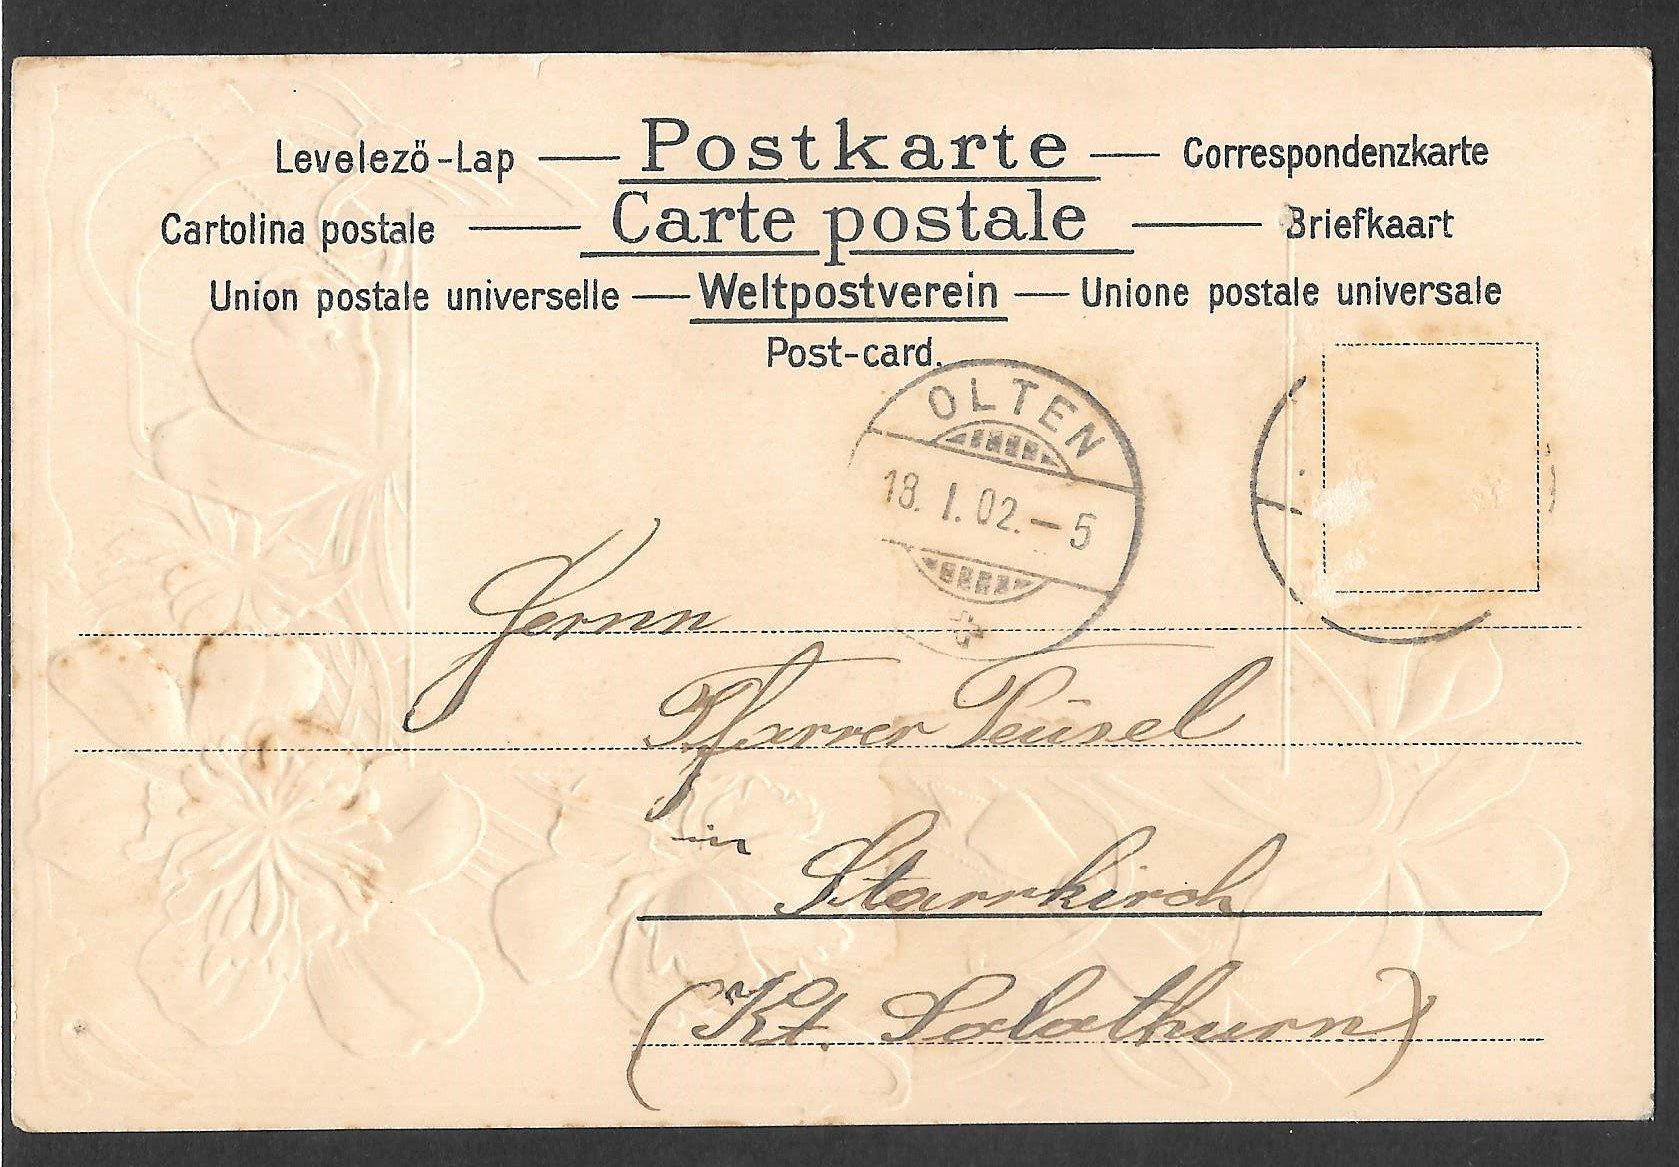 Levelező-Lap — Postkarte — Correspondenzkarte
Cartolina postale — Carte postale — Briefkaart
Union postale universelle — Weltpostverein — Unione postale universale
Post-card.
OLTEN
18. I. 02. – 5
Herrn
Pfarrer Peüsel
in
Starrkirch
(Kt. Solothurn)